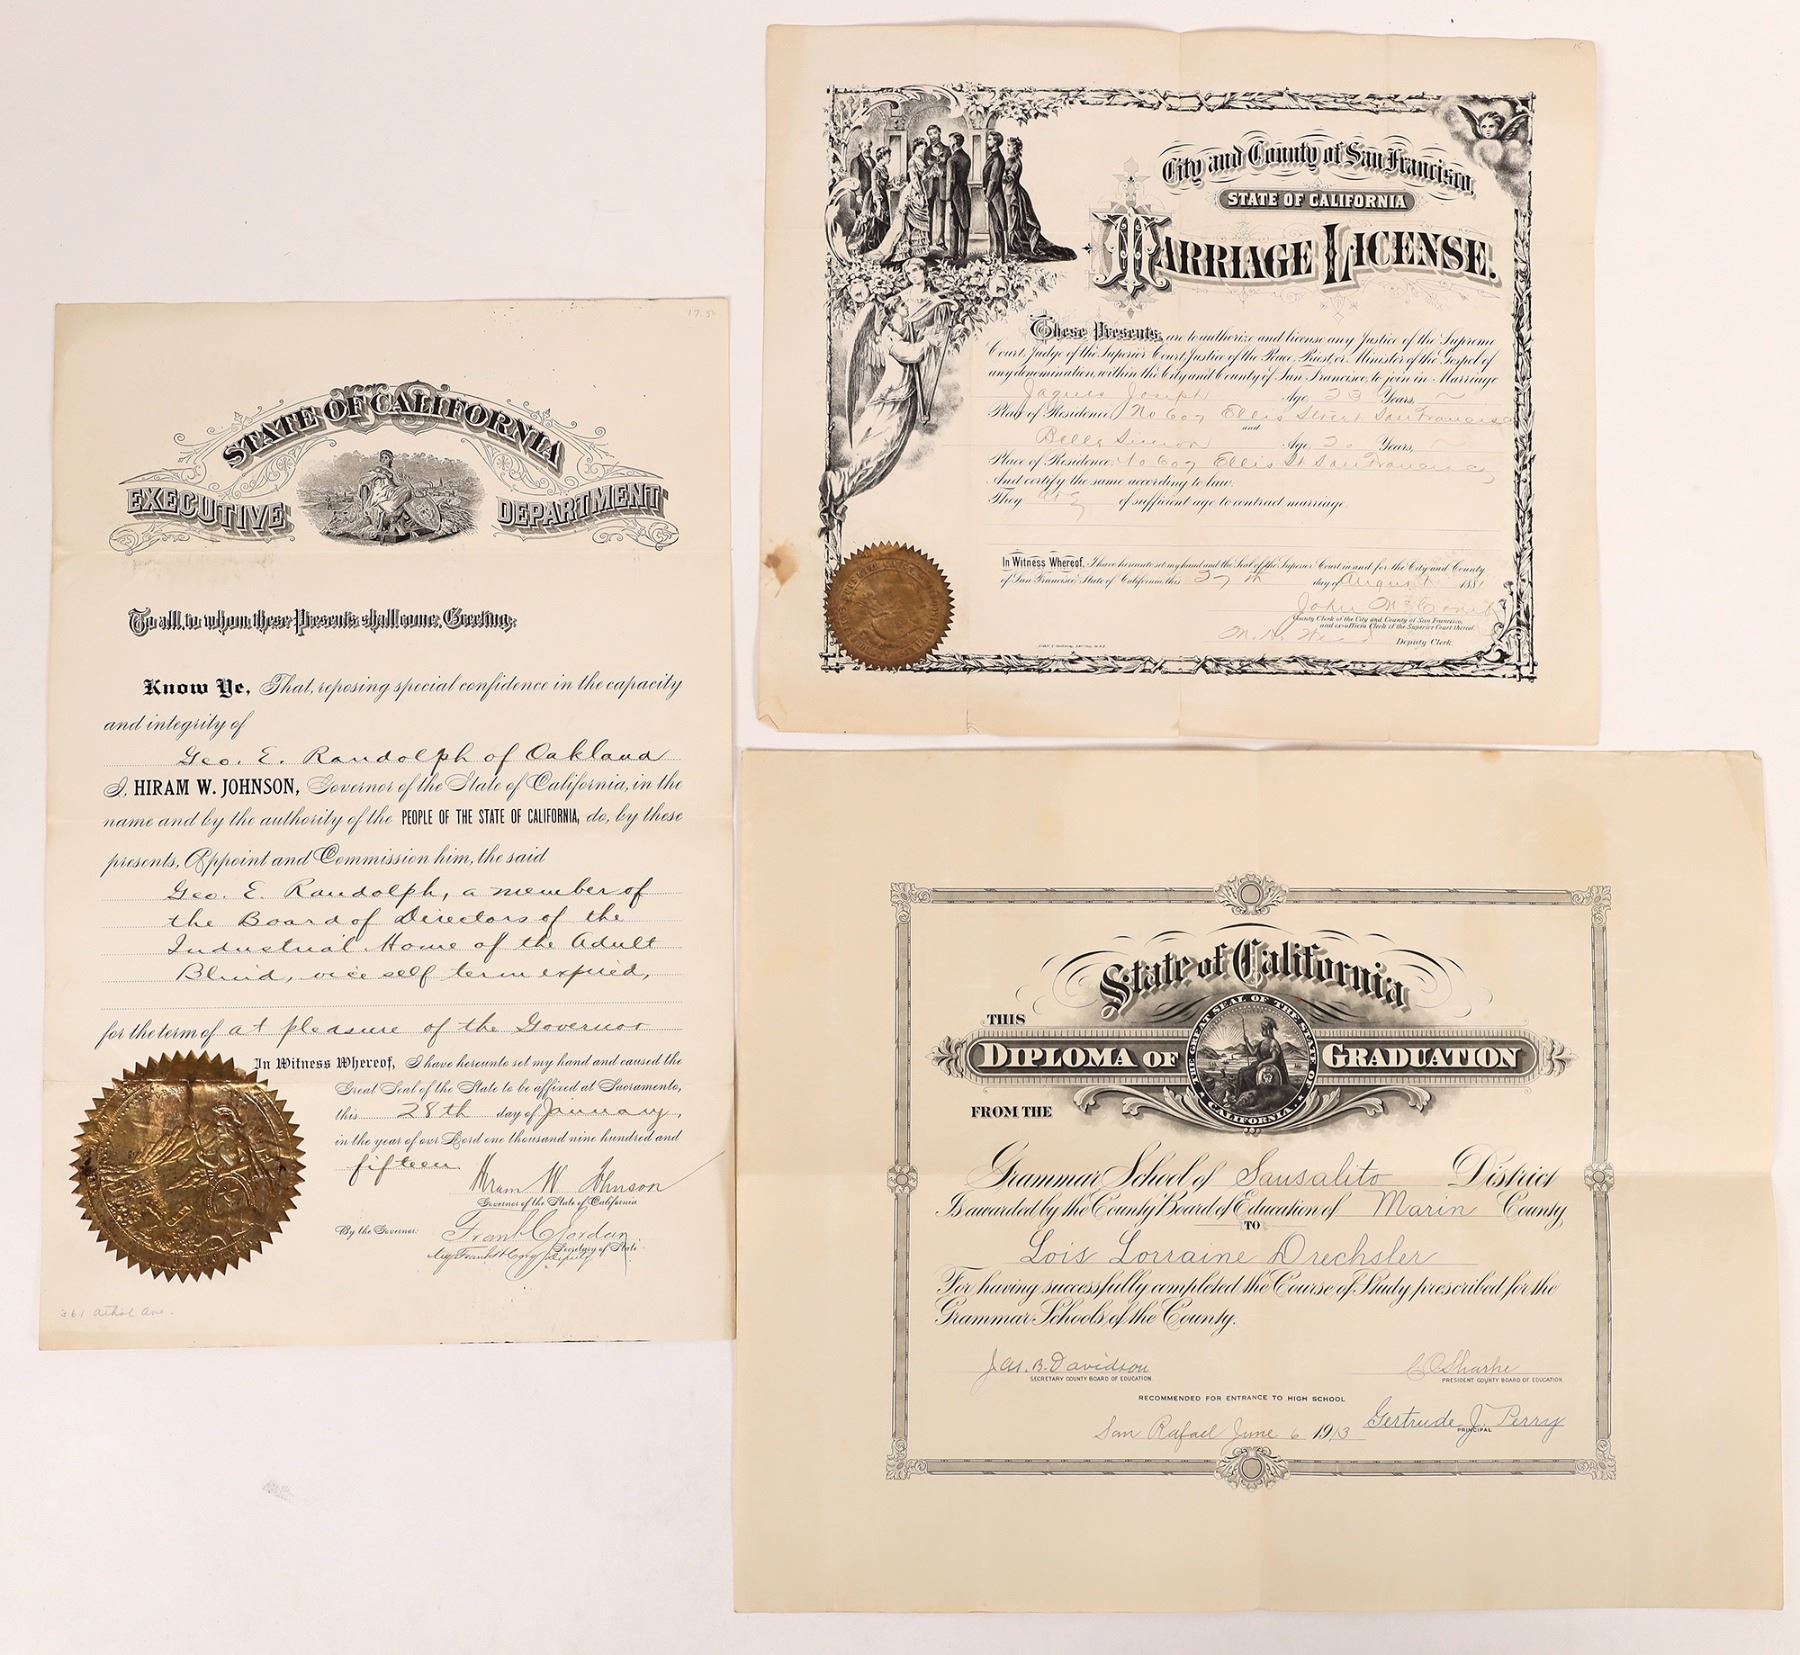 17.5
STATE OF CALIFORNIA
EXECUTIVE DEPARTMENT
To all to whom these Presents shall come, Greeting:
Know Ye, That, reposing special confidence in the capacity
and integrity of
Geo. E. Randolph of Oakland
I, HIRAM W. JOHNSON, Governor of the State of California, in the
name and by the authority of the PEOPLE OF THE STATE OF CALIFORNIA, do, by these
presents, Appoint and Commission him, the said
Geo. E. Randolph, a member of
the Board of Directors of the
Industrial Home of the Adult
Blind, vice self term expired,
for the term of at pleasure of the Governor
In Witness Whereof, I have hereunto set my hand and caused the
Great Seal of the State to be affixed at Sacramento,
this 28th day of January,
in the year of our Lord one thousand nine hundred and
fifteen
Hiram W Johnson
Governor of the State of California
By the Governor:
Frank C Jordan
Secretary of State
Deputy
361 Athol Ave.
15
City and County of San Francisco,
STATE OF CALIFORNIA
MARRIAGE LICENSE.
These Presents, are to authorize and license any Justice of the Supreme
Court, Judge of the Superior Court, Justice of the Peace, Priest, or Minister of the Gospel of
any denomination, within the City and County of San Francisco, to join in Marriage
Jaques Joseph Age 23 Years,
Place of Residence, No 607 Ellis Street San Francisco
and
Belle Simon Age 20 Years,
Place of Residence, No 607 Ellis St San Francisco
And certify the same according to law.
They are of sufficient age to contract marriage.
In Witness Whereof, I have hereunto set my hand and the Seal of the Superior Court in and for the City and County
of San Francisco, State of California, this 27th day of August 1881
John
County Clerk of the City and County of San Francisco,
and ex-officio Clerk of the Superior Court thereof.
Deputy Clerk.
State of California
THIS
DIPLOMA OF GRADUATION
THE GREAT SEAL OF THE STATE OF CALIFORNIA
FROM THE
Grammar School of Sausalito District
Is awarded by the County Board of Education of Marin County
TO
Lois Lorraine Drechsler
For having successfully completed the Course of Study prescribed for the
Grammar Schools of the County.
Jas. B. Davidson
SECRETARY COUNTY BOARD OF EDUCATION
C O Sharpe
PRESIDENT COUNTY BOARD OF EDUCATION
RECOMMENDED FOR ENTRANCE TO HIGH SCHOOL
San Rafael June 6 1913
Gertrude J. Perry
PRINCIPAL